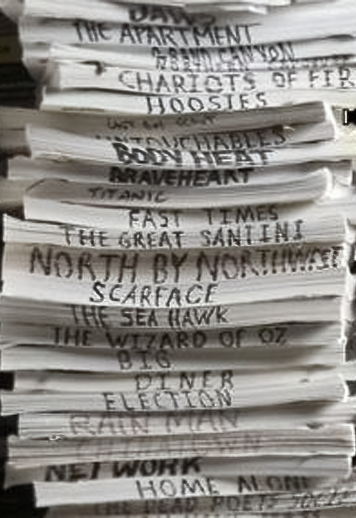 DAWS
THE APARTMENT
CANYON
CHARIOTS OF FIR
HOOSIES
UNTOUCHABLES
BODY HEAT
BRAVEHEART
TITANIC
FAST TIMES
THE GREAT SANTINI
NORTH BY NORTHWEST
SCARFACE
THE SEA HAWK
THE WIZARD OF OZ
BIG
DINER
ELECTION
RAIN MAN
CHINATOWN
NETWORK
HOME ALONE
THE DEAD POETS SOCIETY